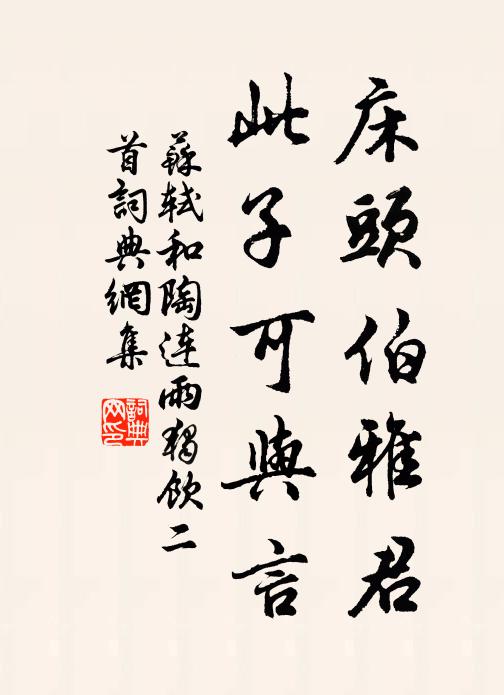 床頭伯雅君
此子可與言
蘇軾和陶連雨獨飲二
首詞典網集
詞典網印